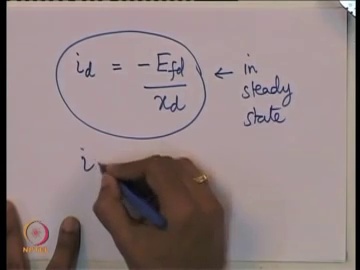 i_d = -E_fd / x_d ← in steady state
i
NPTEL